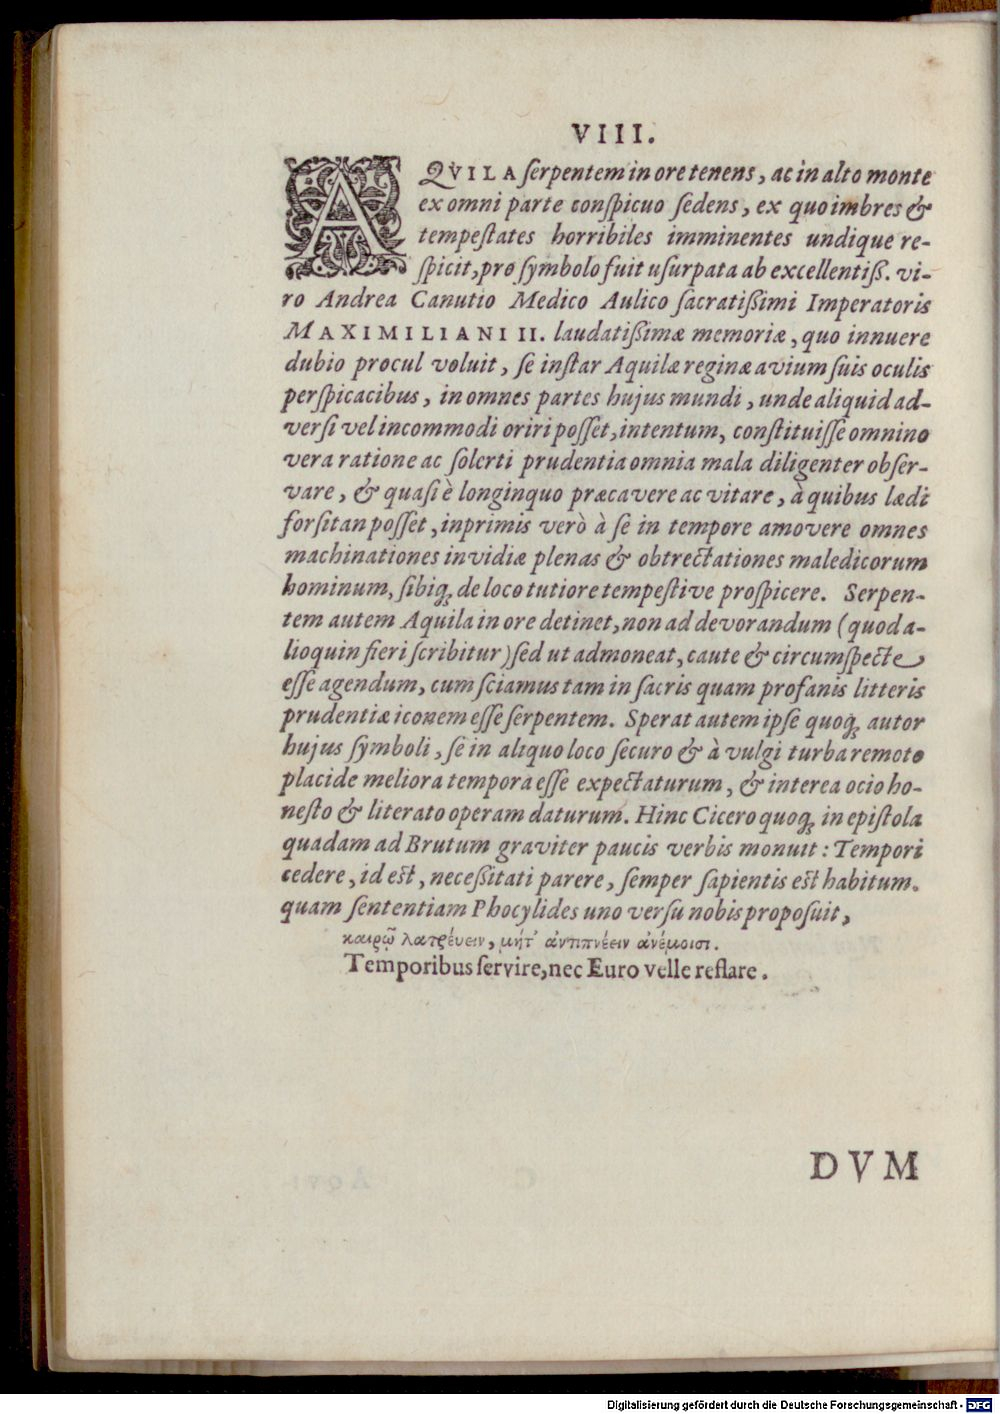 VIII.
AQVILA ſerpentem in ore tenens, ac in alto monte
ex omni parte conſpicuo ſedens, ex quo imbres &
tempeſtates horribiles imminentes undique re-
ſpicit, pro ſymbolo fuit uſurpata ab excellentiß. vi-
ro Andrea Canutio Medico Aulico ſacratißimi Imperatoris
MAXIMILIANI II. laudatißimæ memoriæ, quo innuere
dubio procul voluit, ſe inſtar Aquilæ reginæ avium ſuis oculis
perſpicacibus, in omnes partes hujus mundi, unde aliquid ad-
verſi vel incommodi oriri poſſet, intentum, conſtituiſſe omnino
vera ratione ac ſolerti prudentia omnia mala diligenter obſer-
vare, & quaſi è longinquo præcavere ac vitare, à quibus lædi
forſitan poſſet, inprimis verò à ſe in tempore amovere omnes
machinationes invidiæ plenas & obtrectationes maledicorum
hominum, ſibiq; de loco tutiore tempeſtive proſpicere. Serpen-
tem autem Aquila in ore detinet, non ad devorandum (quod a-
lioquin fieri ſcribitur) ſed ut admoneat, caute & circumſpecte
eſſe agendum, cum ſciamus tam in ſacris quam profanis litteris
prudentiæ iconem eſſe ſerpentem. Sperat autem ipſe quoq; autor
hujus ſymboli, ſe in aliquo loco ſecuro & à vulgi turba remoto
placide meliora tempora eſſe expectaturum, & interea ocio ho-
neſto & literato operam daturum. Hinc Cicero quoq; in epiſtola
quadam ad Brutum graviter paucis verbis monuit: Tempori
cedere, id eſt, neceßitati parere, ſemper ſapientis eſt habitum.
quam ſententiam Phocylides uno verſu nobis propoſuit,
καιρῷ λατρέυειν, μήτ᾽ ἀντιπνέειν ἀνέμοισι.
Temporibus ſervire, nec Euro velle reflare.
DVM
Digitalisierung gefördert durch die Deutsche Forschungsgemeinschaft - DFG